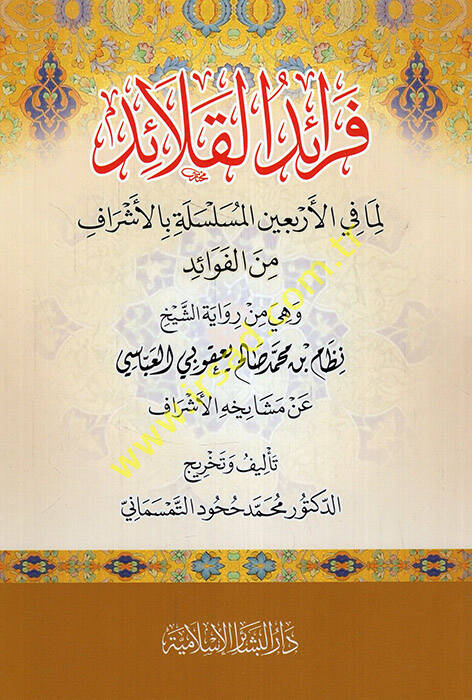 فَرَائِدُ القَلَائِد
لِمَا فِي الأَرْبَعِين المُسَلْسَلَةِ بِالأَشْرَافِ
مِنَ الفَوَائِدِ
وَهِيَ مِنْ رِوَايَةِ الشَّيْخِ
نظام بن محمد صالح يعقوبي العباسي
عَنْ مَشَايِخِهِ الأَشْرَافِ
تَأْلِيفُ وَتَخْرِيج
الدّكتور محمّد حُحُود التّمسمَانيّ
دَارُ البشائر الإسلاميّة
www.irsad.com.tr